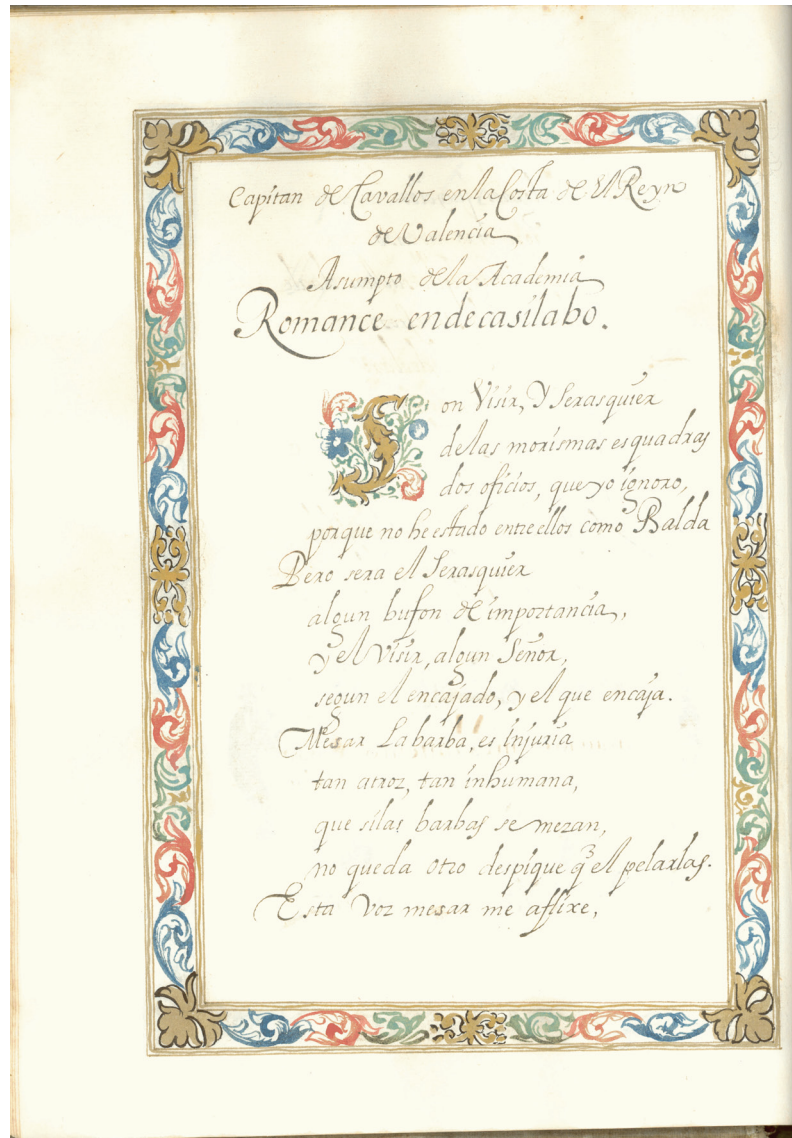 Capitan de Cavallos en la Costa de el Reyn
de Valencia
Asumpto de la Academia
Romance endecasilabo.
Son Visir, Y Serasquier
de las morismas esquadras
dos oficios, que yo ignoro,
porque no he estado entre ellos como Balda
Pero sera el Serasquier
algun bufon de importancia,
y el Visir, algun Señor,
segun el encajado, y el que encaja.
Mesar La barba, es Injuria
tan atroz, tan inhumana,
que si las barbas se mezan,
no queda otro despique q̃ el pelarlas.
Esta Voz mesar me aflixe,